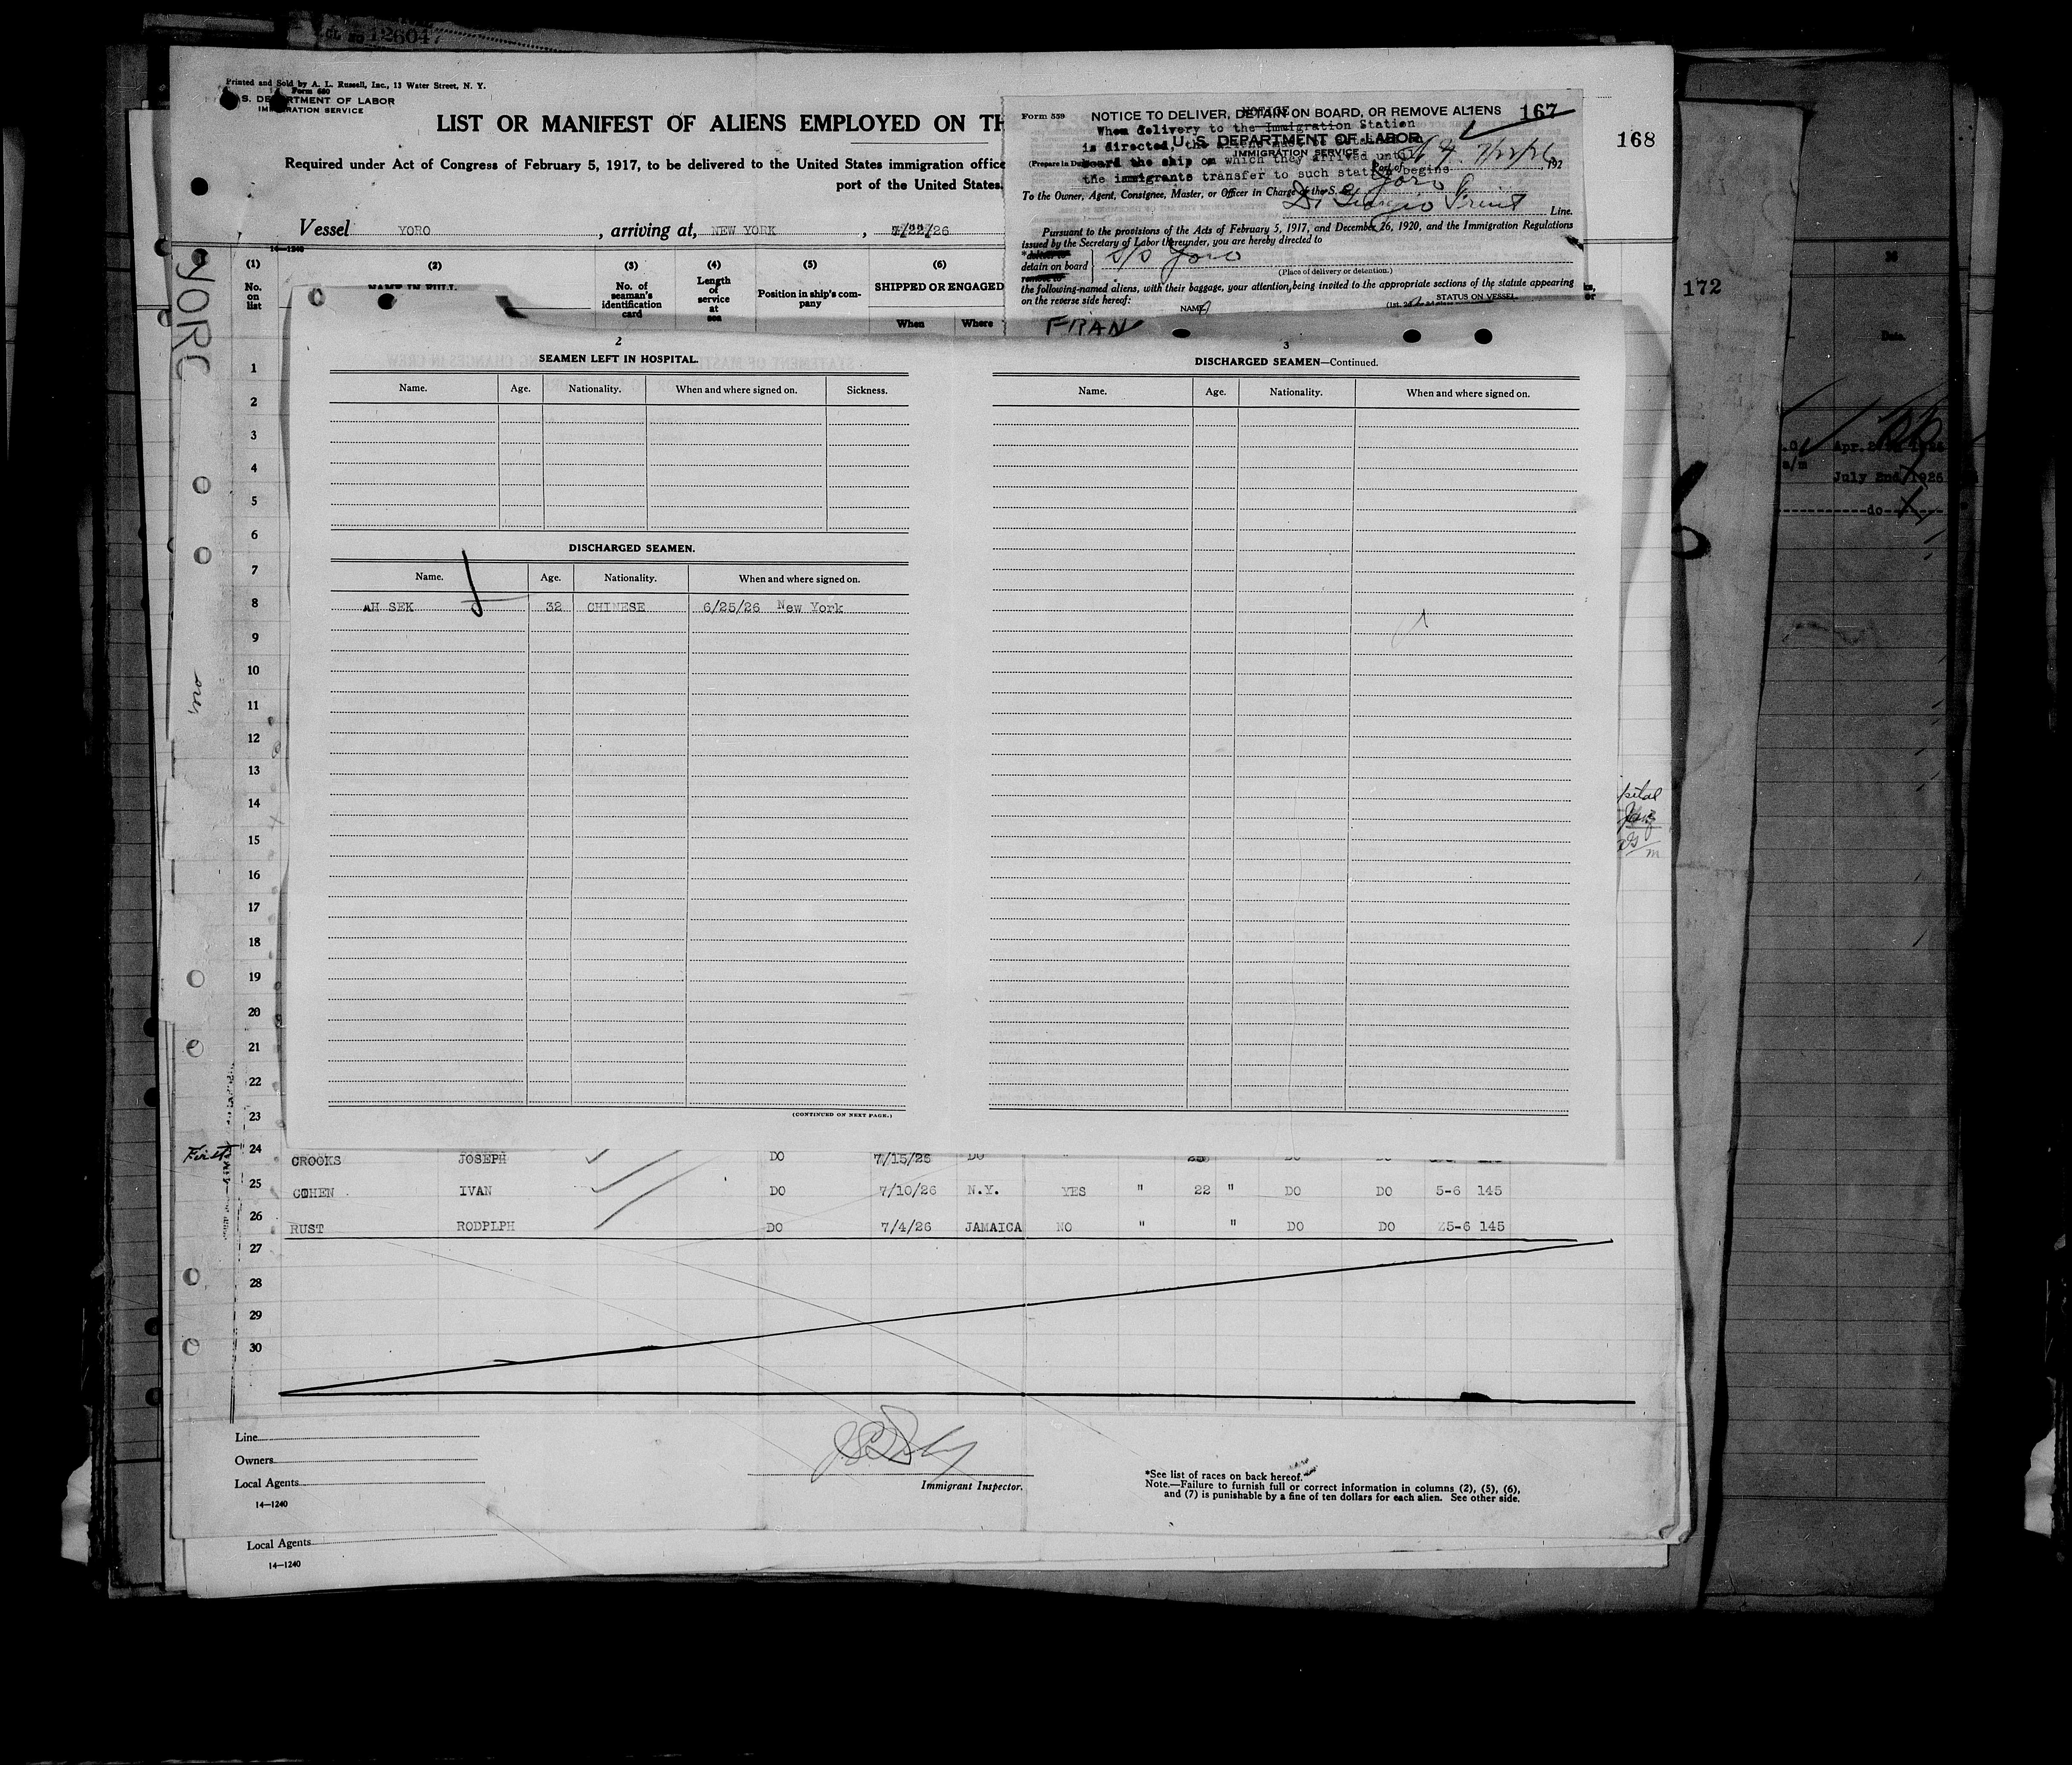 126047
Printed and Sold by A. L. Russell, Inc., 13 Water Street, N. Y.
Form 680
S. DEPARTMENT OF LABOR
IMMIGRATION SERVICE
LIST OR MANIFEST OF ALIENS EMPLOYED ON TH
Required under Act of Congress of February 5, 1917, to be delivered to the United States immigration office
port of the United States.
Vessel YORO, arriving at, NEW YORK, 7/22/26
14-1240
(1) (2) (3) (4) (5) (6)
No. on list
No. of seaman's identification card
Length of service at sea
Position in ship's company
SHIPPED OR ENGAGED
When Where
Form 559
NOTICE TO DELIVER, DETAIN ON BOARD, OR REMOVE ALIENS
167
NOTICE
When delivery to the Immigration Station
is directed, the
U. S. DEPARTMENT OF LABOR
IMMIGRATION SERVICE
board the ship on which they arrived until
the immigrants transfer to such station begins
7/22/26, 192
To the Owner, Agent, Consignee, Master, or Officer in Charge of the S. S. Yoro
Di Giorgio Fruit Line.
Pursuant to the provisions of the Acts of February 5, 1917, and December 26, 1920, and the Immigration Regulations
issued by the Secretary of Labor thereunder, you are hereby directed to
*deliver to
detain on board
remove to
S/S Yoro
(Place of delivery or detention.)
the following-named aliens, with their baggage, your attention being invited to the appropriate sections of the statute appearing
on the reverse side hereof:
NAME
STATUS ON VESSEL.
FRAN
168
172
YORO
Date.
July 2nd, 1926
do
2
SEAMEN LEFT IN HOSPITAL.
Name. Age. Nationality. When and where signed on. Sickness.
DISCHARGED SEAMEN.
Name. Age. Nationality. When and where signed on.
AH SEK 32 CHINESE 6/25/26 New York
(CONTINUED ON NEXT PAGE.)
3
DISCHARGED SEAMEN—Continued.
Name. Age. Nationality. When and where signed on.
1
2
3
4
5
6
7
8
9
10
11
12
13
14
15
16
17
18
19
20
21
22
23
24 CROOKS JOSEPH DO 7/15/26 DO
25 COHEN IVAN DO 7/10/26 N.Y. YES " 22 " DO DO 5-6 145
26 RUST RODPLPH DO 7/4/26 JAMAICA NO " " DO DO 25-6 145
27
28
29
30
First
Line
Owners
Local Agents
14-1240
Immigrant Inspector.
*See list of races on back hereof.
Note.—Failure to furnish full or correct information in columns (2), (5), (6),
and (7) is punishable by a fine of ten dollars for each alien. See other side.
Local Agents
14-1240